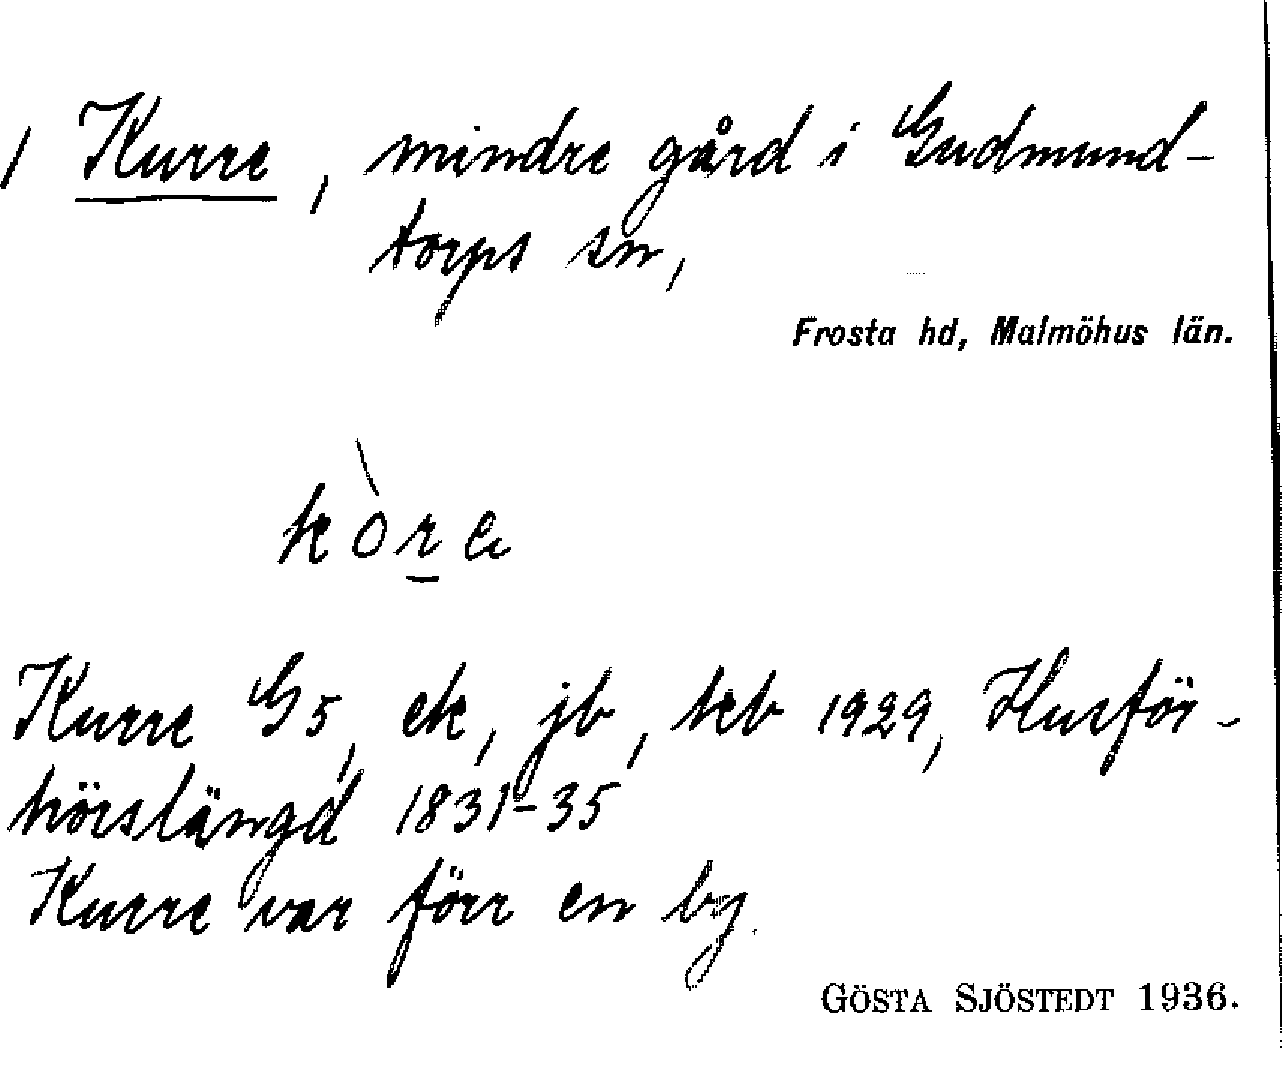 / Kurre, mindre gård i Gudmund-
torps sn,
Frosta hd, Malmöhus län.
kòre
Kurre G5, ek, jb, kb 1929, Husför-
hörslängd 1831-35
Kurre var förr en by.
GÖSTA SJÖSTEDT 1936.